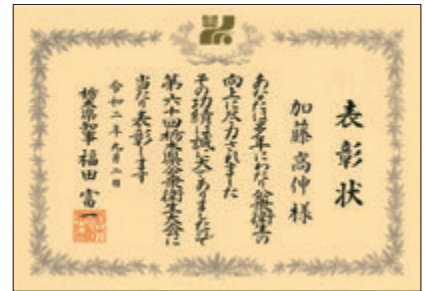 表彰状
加藤高伸様
あなたは多年にわたり公衆衛生の
向上に尽力されました
その功績は誠に大でありましたので
第六十四回栃木県公衆衛生大会に
当たり表彰します
令和二年九月二日
栃木県知事 福田富一